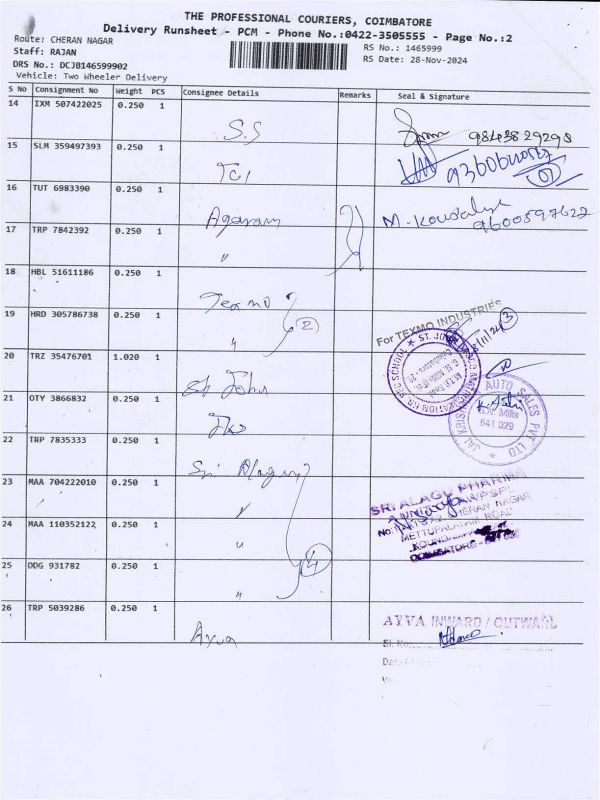 THE PROFESSIONAL COURIERS, COIMBATORE
Delivery Runsheet - PCM - Phone No.:0422-3505555 - Page No.:2
Route: CHERAN NAGAR
RS No.: 1465999
Staff: RAJAN
RS Date: 28-Nov-2024
DRS No.: DCJB146599902
Vehicle: Two Wheeler Delivery
S No Consignment No Weight PCS Consignee Details Remarks Seal & Signature
14 IXM 507422025 0.250 1
S.S 9843829298
15 SLM 359497393 0.250 1
TCI
16 TUT 6983390 0.250 1
Agaram M. Kowsalya 9600597622
17 TRP 7842392 0.250 1
"
18 HBL 51611186 0.250 1
Texmo
For TEXMO INDUSTRIES
19 HRD 305786738 0.250 1
" 2 3
20 TRZ 35476701 1.020 1
St Johns
21 OTY 3866832 0.250 1
AUTO SALES PVT LTD
G.N. Mills
641 029
22 TRP 7835333 0.250 1
Sri Alagu
23 MAA 704222010 0.250 1
"
SRI ALAGU PHARMA
24 MAA 110352122 0.250 1
"
METTUPALAYAM ROAD
COIMBATORE
25 DDG 931782 0.250 1
" 4
26 TRP 5039286 0.250 1
Ayva
AYVA INWARD / OUTWARD
Sl. No.